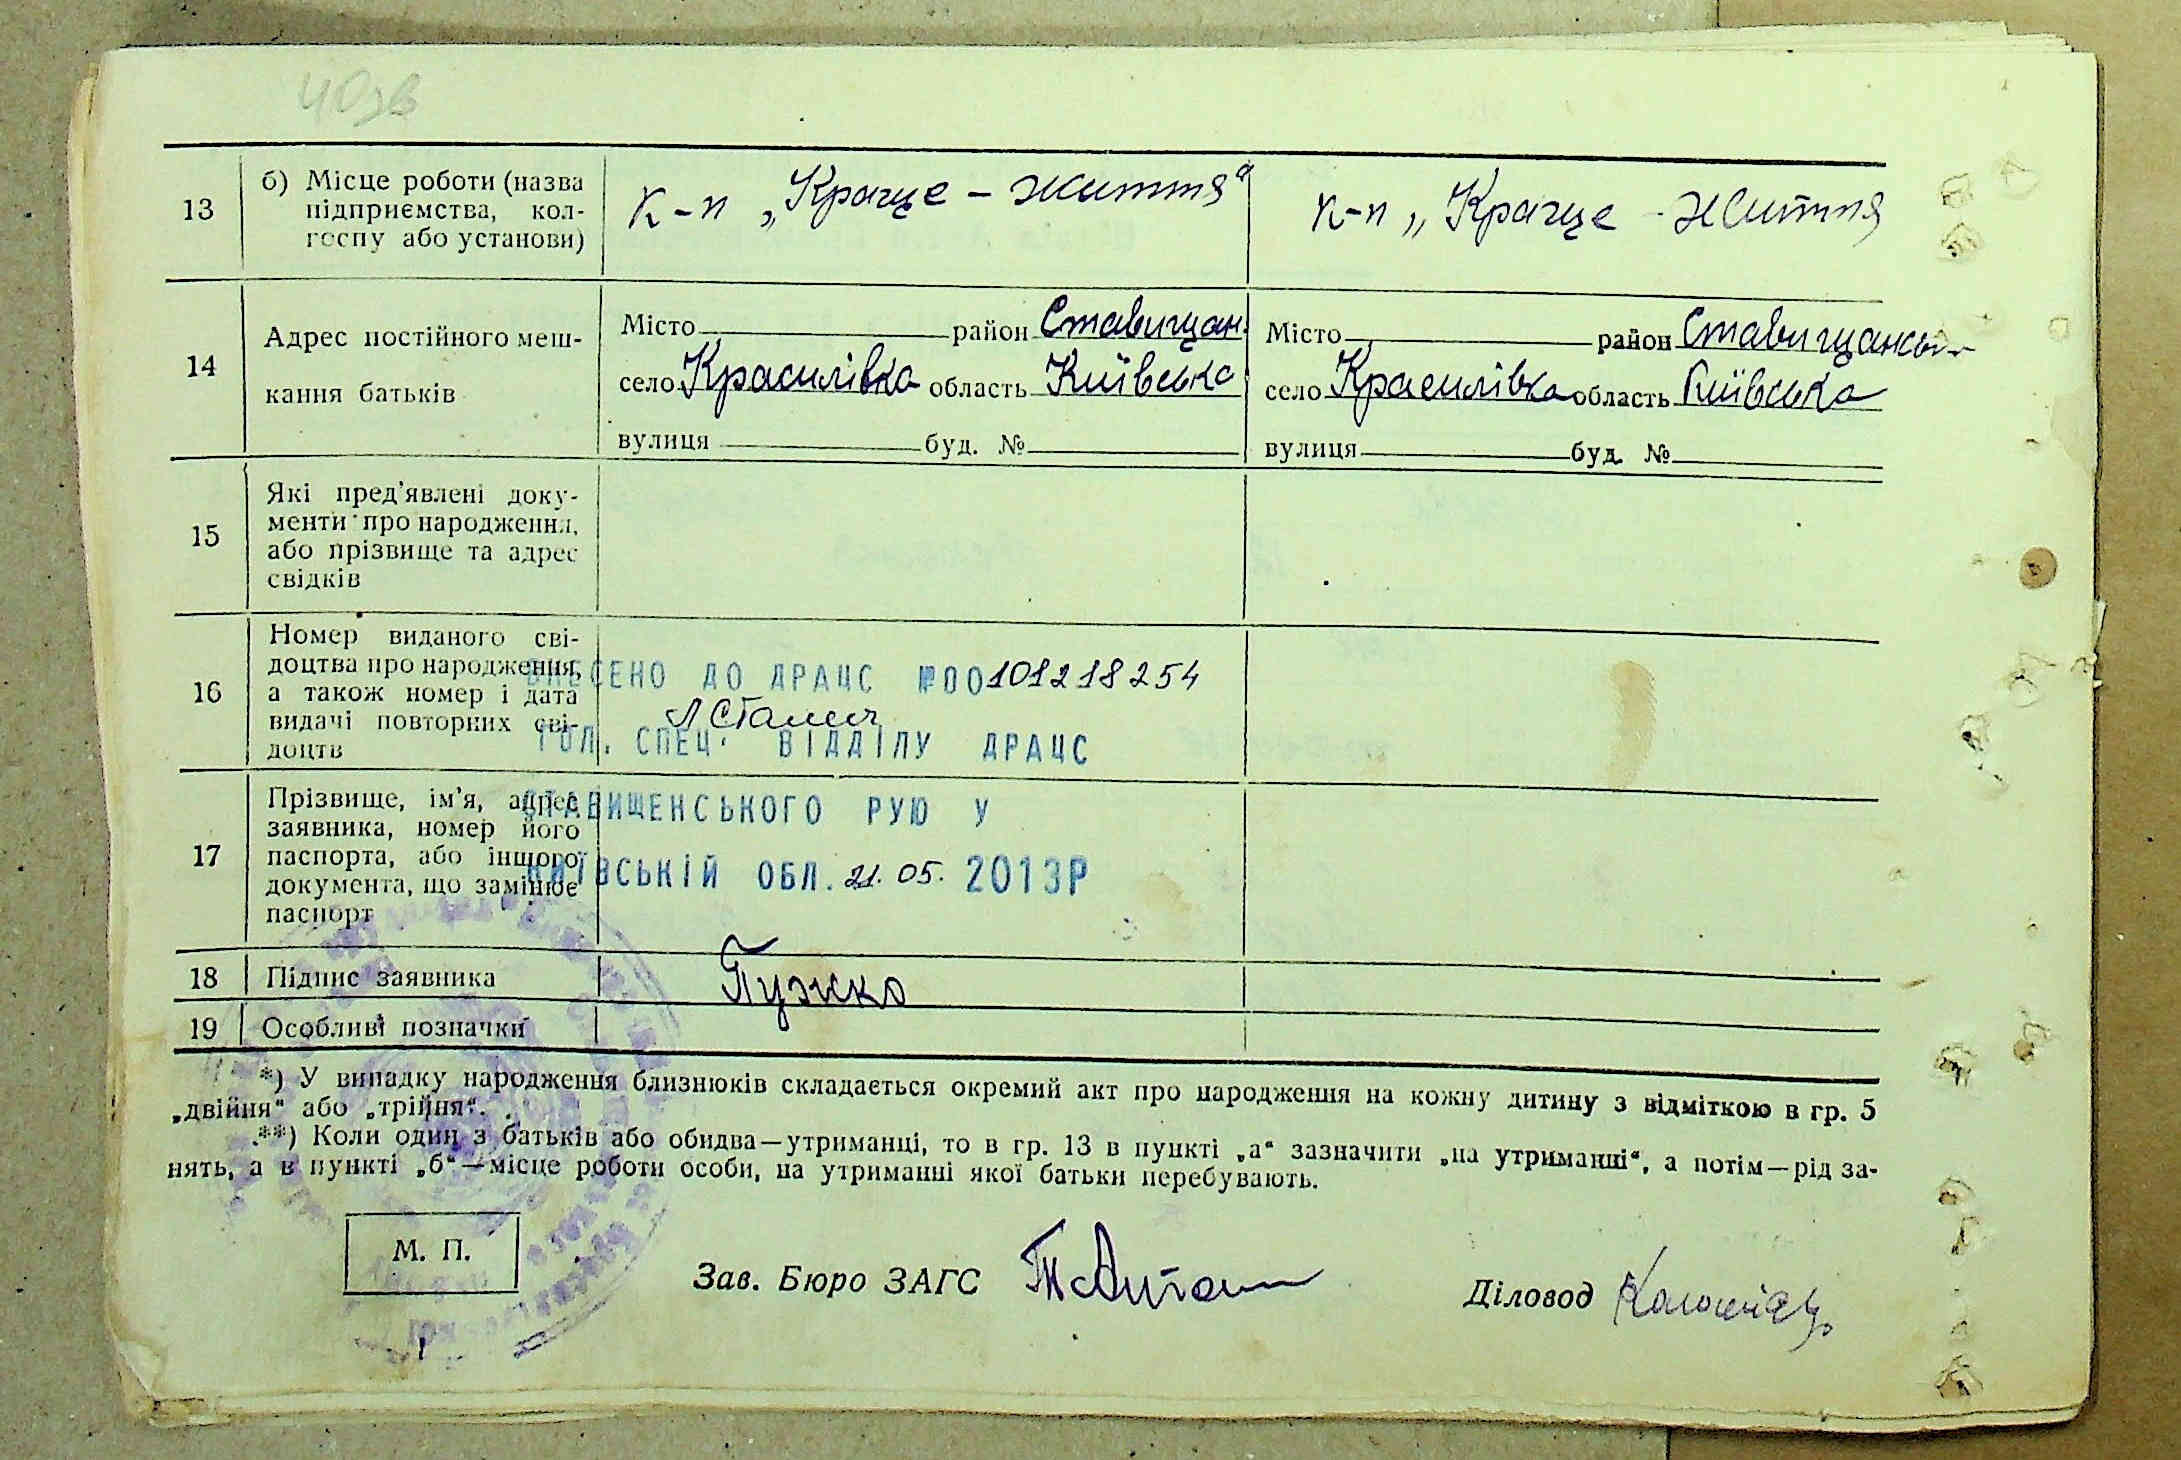 40зв
13
б) Місце роботи (назва
підприємства, кол-
госпу або установи)
к-п „Краще - життя"
к-п „Краще - життя
14
Адрес постійного меш-
кання батьків
Місто район Ставищан.
село Красилівка область Київська
вулиця буд. №
Місто район Ставищансь
село Красилівка область Київська
вулиця буд. №
15
Які пред'явлені доку-
менти про народження,
або прізвище та адрес
свідків
16
Номер виданого сві-
доцтва про народження,
а також номер і дата
видачі повторних сві-
доцтв
ВНЕСЕНО ДО ДРАЦС №00101218254
ГОЛ. СПЕЦ. ВІДДІЛУ ДРАЦС
17
Прізвище, ім'я, адрес
заявника, номер його
паспорта, або іншого
документа, що замінює
паспорт
СТАВИЩЕНСЬКОГО РУЮ У
КИЇВСЬКІЙ ОБЛ. 21.05. 2013Р
18 Підпис заявника Пужко
19 Особливі позначки
*) У випадку народження близнюків складається окремий акт про народження на кожну дитину з відміткою в гр. 5
„двійня" або „трійня".
**) Коли один з батьків або обидва—утриманці, то в гр. 13 в пункті „а" зазначити „на утриманні", а потім—рід за-
нять, а в пункті „б"—місце роботи особи, на утриманні якої батьки перебувають.
М. П.
Зав. Бюро ЗАГС
Діловод